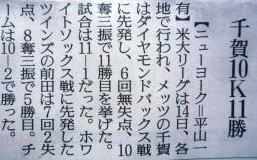 千賀10K11勝
【ニューヨーク=平山一
有】米大リーグは14日、各
地で行われ、メッツの千賀
はダイヤモンドバックス戦
に先発し、6回無失点、10
奪三振で11勝目を挙げた。
試合は11―1だった。ホワ
イトソックス戦に先発した
ツインズの前田は7回2失
点、8奪三振で5勝目。チ
ームは10―2で勝った。